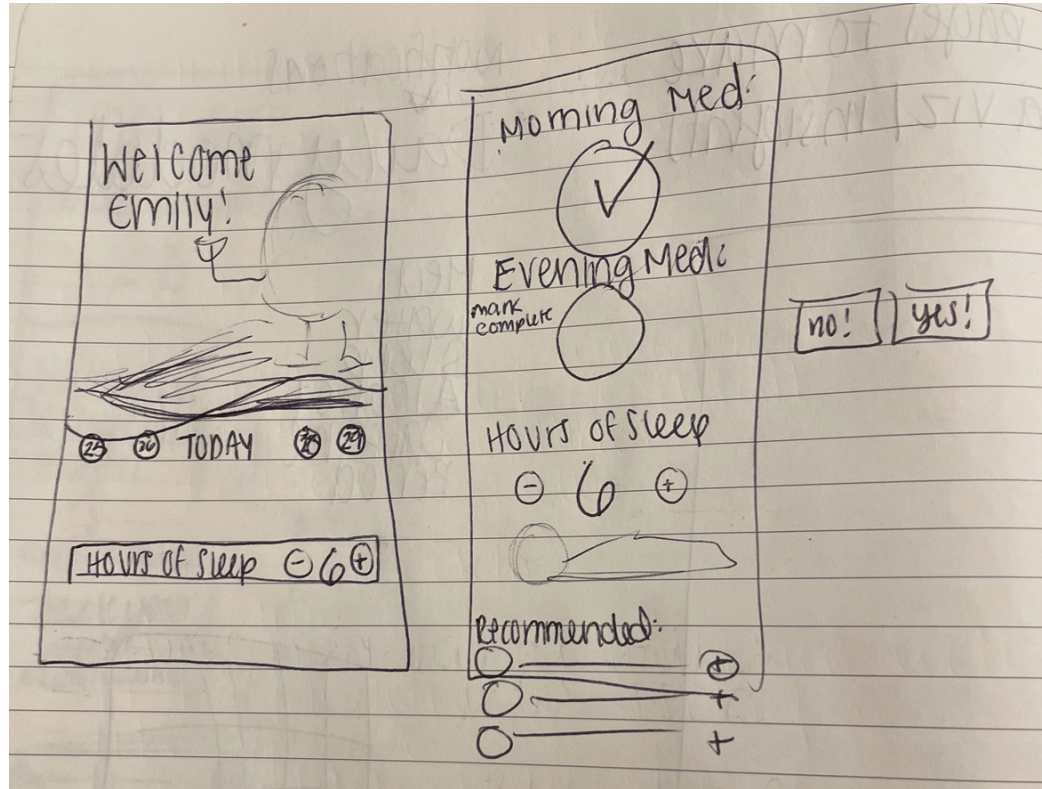 Welcome
Emily!
25 26 TODAY 28 29
Hours of Sleep - 6 +
Morning Med:
Evening Med:
mark
complete
no! yes!
Hours of Sleep
- 6 +
Recommended:
+
+
+